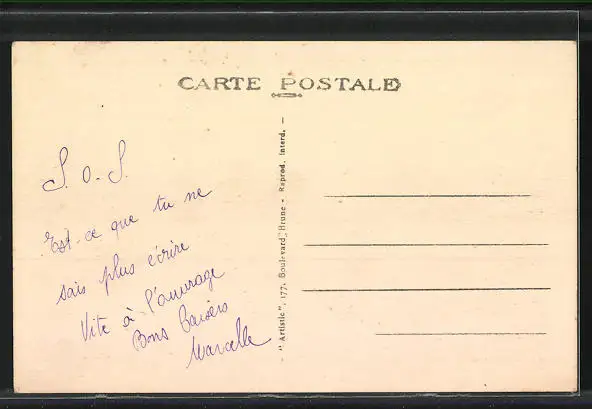 CARTE POSTALE
S. O. S.
Est-ce que tu ne
sais plus écrire
Vite à l'ouvrage
Bons baisers
Marcelle
"Artistic", 177, Boulevard Brune - Reprod. Interd. -